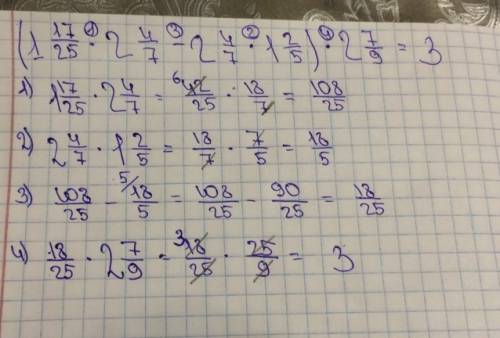 (1 17/25 ·① 2 4/7 −③ 2 4/7 ·② 1 2/5) ·④ 2 7/9 = 3
1) 1 17/25 · 2 4/7 = ⁶42/25 · 18/7 = 108/25
2) 2 4/7 · 1 2/5 = 18/7 · 7/5 = 18/5
3) 108/25 − ⁵⁄18/5 = 108/25 − 90/25 = 18/25
4) 18/25 · 2 7/9 = ³18/25 · 25/9 = 3